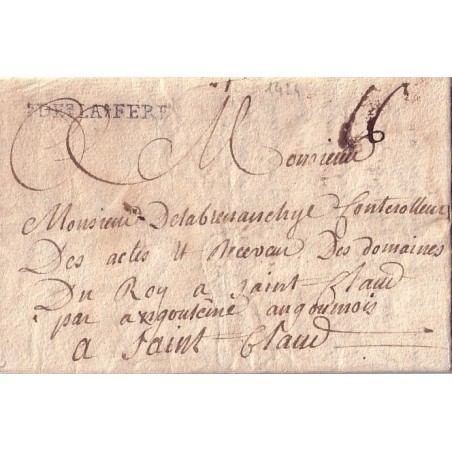 DE LA FERE
1424
Monsieur
Monsieur Delabrenanchye Conterolleur
Des actes Et Receveu Des domaines
Du Roy a Saint-Claud
par angoulême angoumois
a Saint-Claud